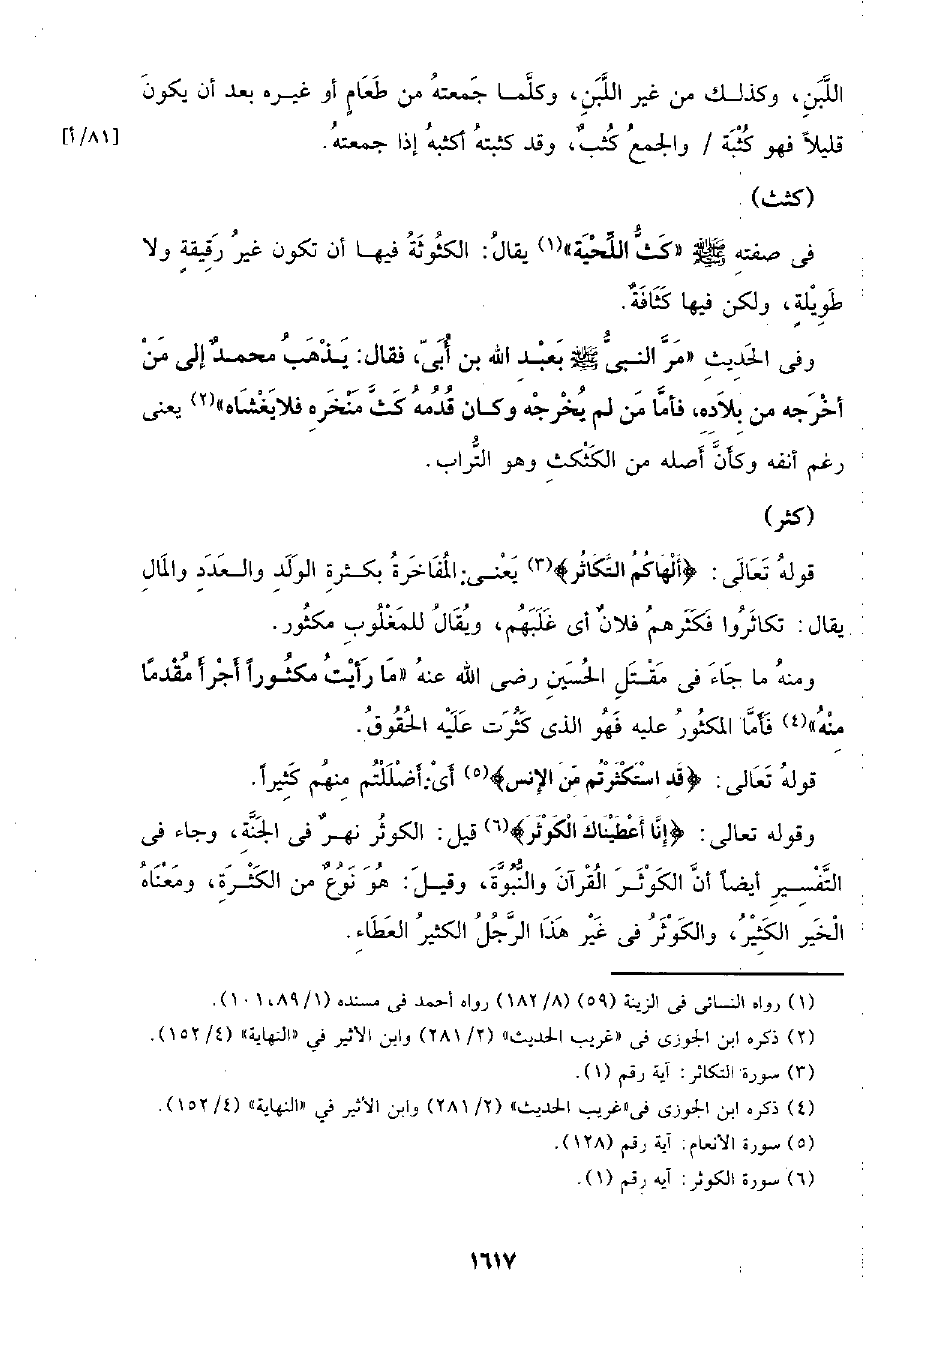 اللَّبَنِ، وكذلك من غير اللَّبَنِ، وكلَّما جَمعتهُ من طَعَامٍ أو غيره بعد أن يكونَ
[٨١/أ]
قليلاً فهو كُثْبَة / والجمعُ كُثبٌ، وقد كثبتهُ أكثبهُ إذا جمعتهُ.
(كثث)
فى صفته ﷺ «كَثُّ اللِّحْيَة»(١) يقالُ: الكثُوثَةُ فيها أن تكون غيرُ رَقِيقةٍ ولا
طَوِيْلةٍ، ولكن فيها كَثَافَةٌ.
وفى الحَديثِ «مَرَّ النبيُّ ﷺ بَعبْد الله بن أُبَيّ، فقال: يَذْهَبُ محمدٌ إلى مَنْ
أخْرَجه من بِلاَدِه، فأمَّا مَن لم يُخْرجْه وكان قدُمُه كَثَّ مَنْخَره فلايَغْشَاه»(٢) يعنى
رغم أنفه وكأنَّ أصله من الكَثْكثِ وهو التُّراب.
(كثر)
قولهُ تَعَالَى: ﴿أَلْهَاكُمُ التَّكَاثُر﴾(٣) يَعْنى: المُفَاخَرةُ بكثرةِ الوَلَدِ والعَدَدِ والمَالِ
يقال: تكاثَرُوا فَكَثَرهمُ فلانٌ أى غَلَبَهُم، ويُقَالُ للمَغْلُوبِ مكثُور.
ومنهُ ما جَاءَ فى مَقْتَلِ الحُسَينِ رضى الله عنهُ «مَا رَأيْتُ مكثُوراً أجْرأَ مُقْدمًا
منْهُ»(٤) فَأمَّا المكثُورُ عليه فَهُو الذى كَثُرَت عَلَيْه الحُقُوقُ.
قولهُ تَعَالى: ﴿قَد اسْتَكْثَرْتُم مّنَ الإِنس﴾(٥) أَىْ: أضْلَلْتُم منهُم كَثيراً.
وقوله تعالى: ﴿إنَّا أعْطَيْنَاكَ الْكَوْثَرَ﴾(٦) قيل: الكوثُر نهرٌ فى الجَنَّةِ، وجاء فى
التَّفْسيرِ أيضاً أنَّ الكَوْثَرَ القُرآنَ والنُّبُوَّةَ، وقيلَ: هُوَ نَوْعٌ من الكَثْرَةِ، ومعْنَاهُ
الْخَيرِ الكَثِيْرُ، والكَوْثَرُ فى غَيْر هَذَا الرَّجُلُ الكثيرُ العَطَاء.
(١) رواه النسائى فى الزينة (٥٩) (٨/ ١٨٢) رواه أحمد فى مسنده (١/ ٨٩، ١٠١).
(٢) ذكره ابن الجوزى فى «غريب الحديث» (٢/ ٢٨١) وابن الأثير في «النهاية» (٤/ ١٥٢).
(٣) سورة التكاثر: آية رقم (١).
(٤) ذكره ابن الجوزى فى«غريب الحديث» (٢/ ٢٨١) وابن الأثير في «النهاية» (٤/ ١٥٢).
(٥) سورة الأنعام: آية رقم (١٢٨).
(٦) سورة الكوثر: آيه رقم (١).
١٦١٧